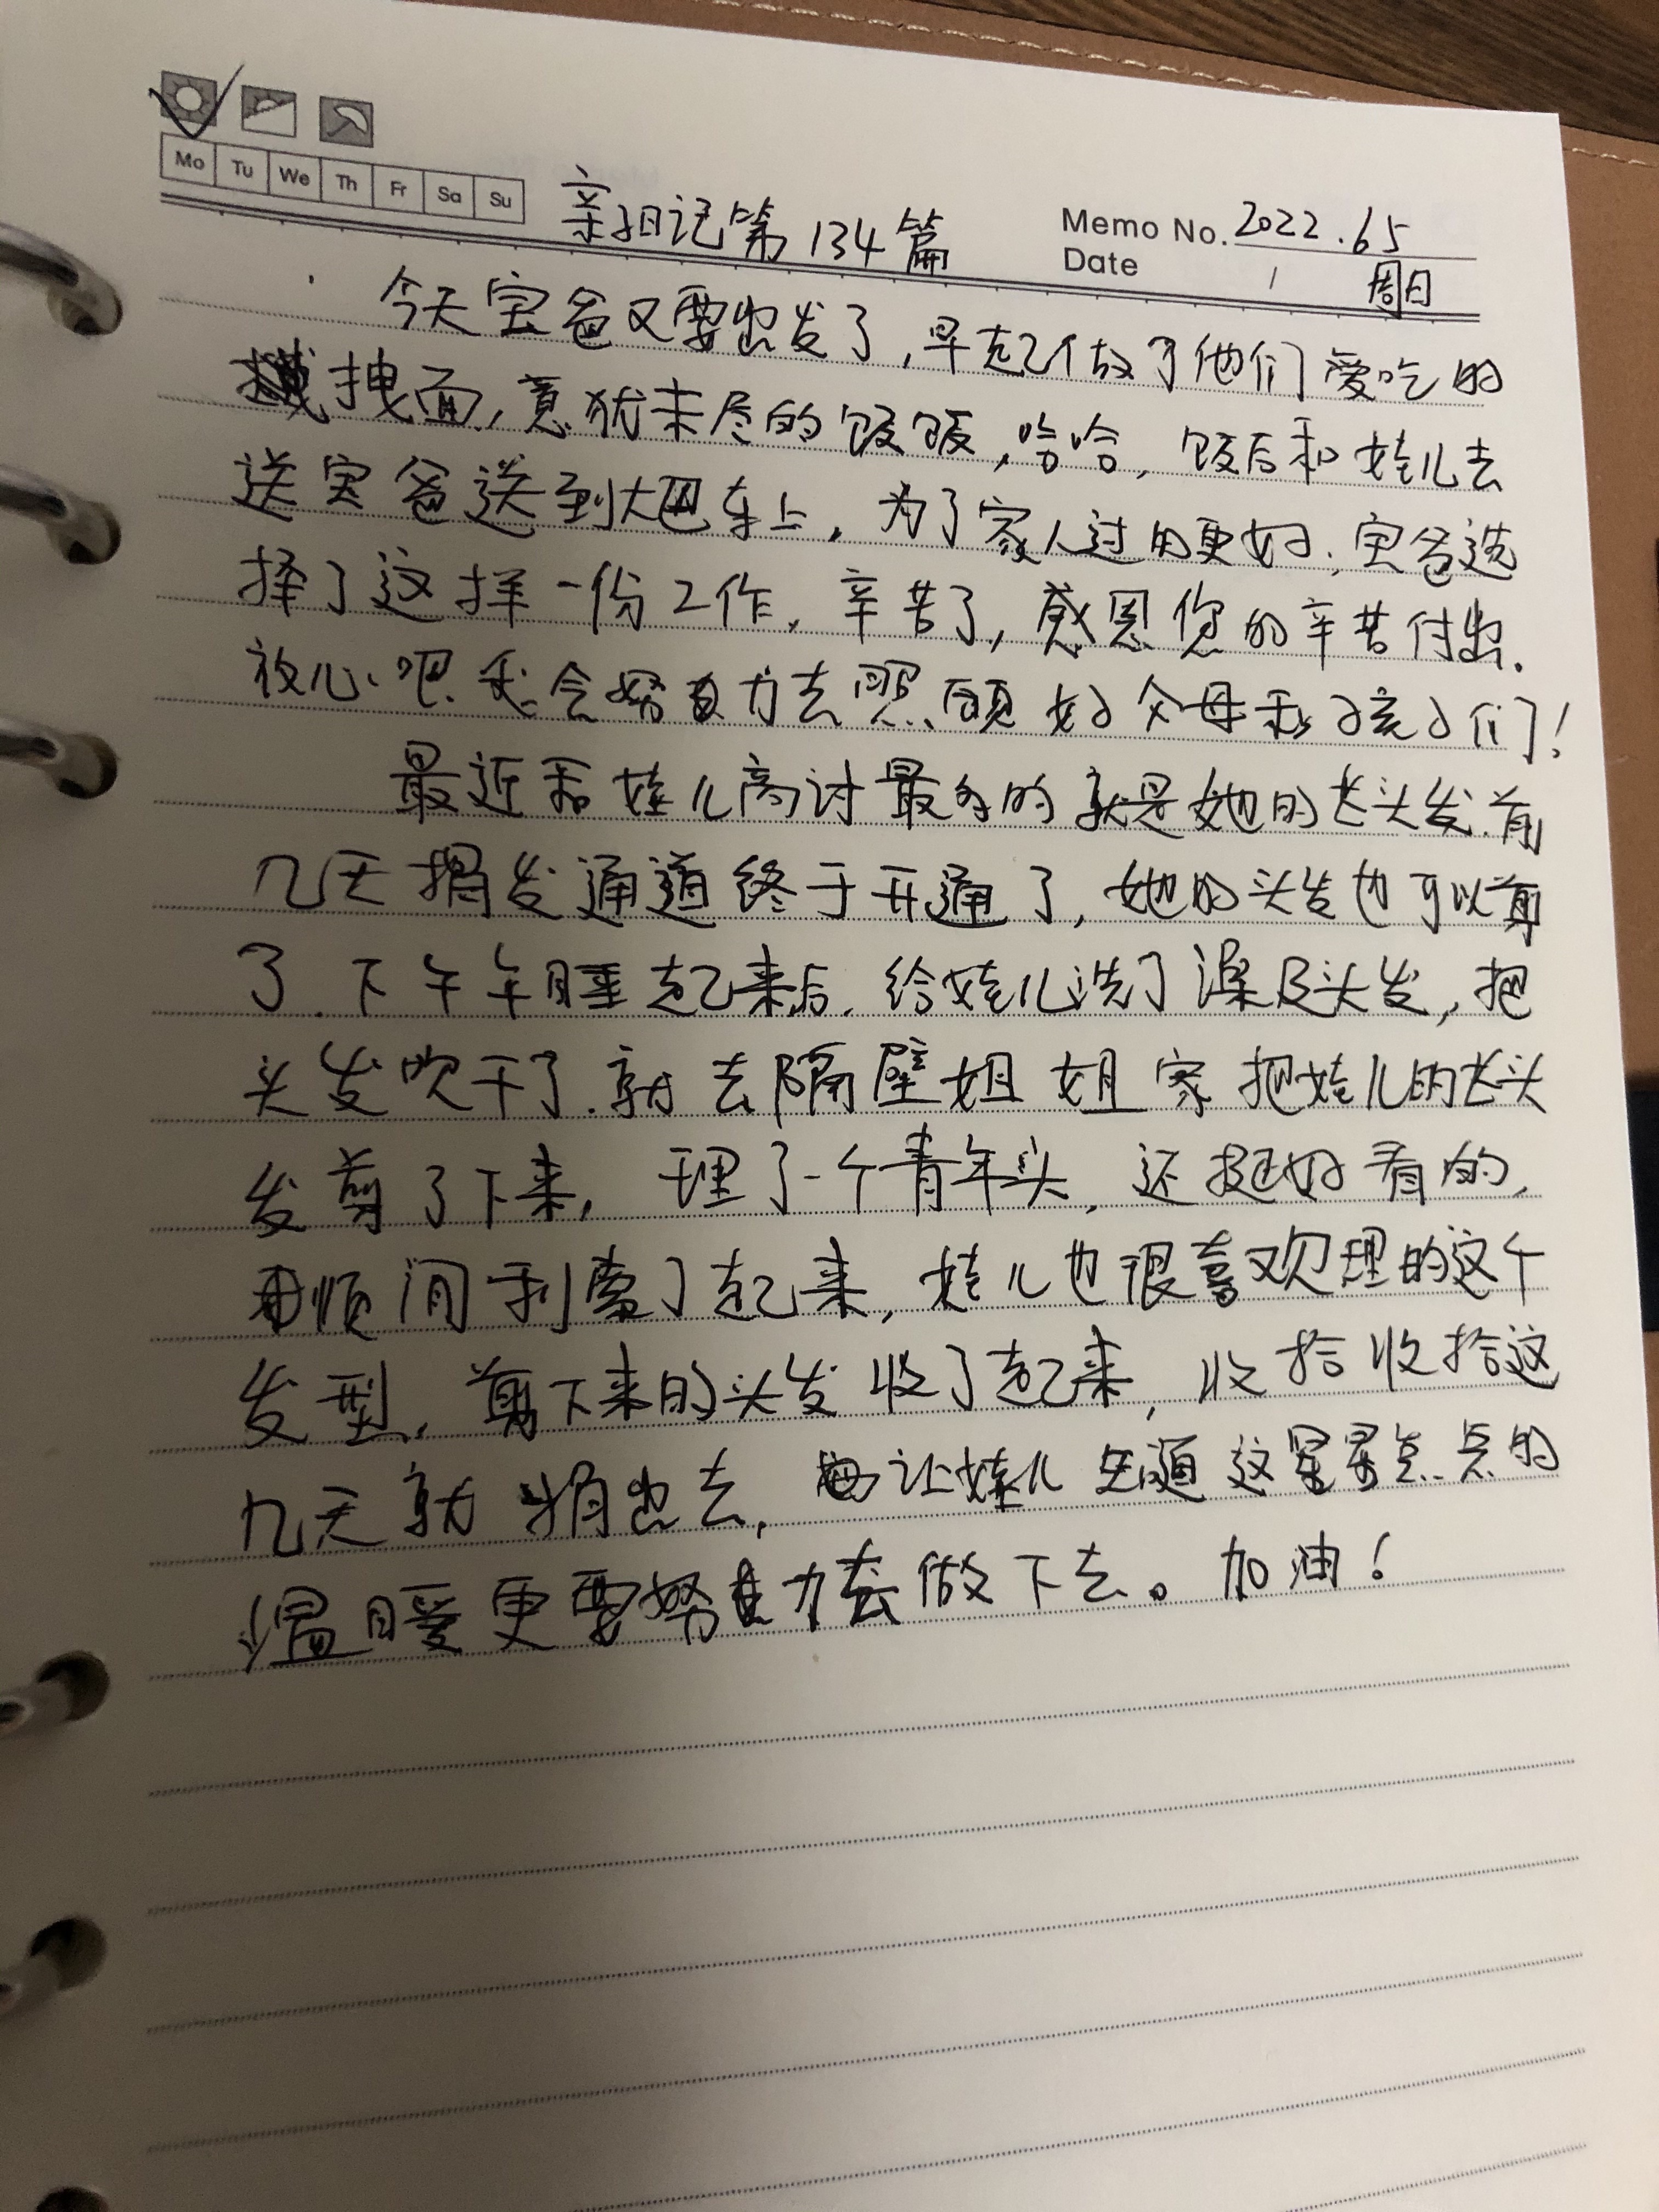 Mo Tu We Th Fr Sa Su
亲子日记第134篇
Memo No. 2022.6.5
Date / 周日
今天宝爸又要出发了,早起做了他们爱吃的
拽面,意犹未尽的饭饭,哈哈,饭后和娃儿去
送宝爸送到大巴车上,为了家人过的更好,宝爸选
择了这样一份工作,辛苦了,感恩您的辛苦付出.
放心吧,我会努力去照顾好父母和孩子们!
最近和娃儿商讨最多的就是她的长头发.前
几天捐发通道终于开通了,她的头发也可以剪
了.下午午睡起来后,给娃儿洗了澡及头发,把
头发吹干了.就去隔壁姐姐家把娃儿的长头
发剪了下来,理了一个青年头,还挺好看的,
顺间利索了起来,娃儿也很喜欢理的这个
发型,剪下来的头发收了起来,收拾收拾这
几天就捐出去,让娃儿知道这星星点点的
温暖更要努力去做下去。加油!